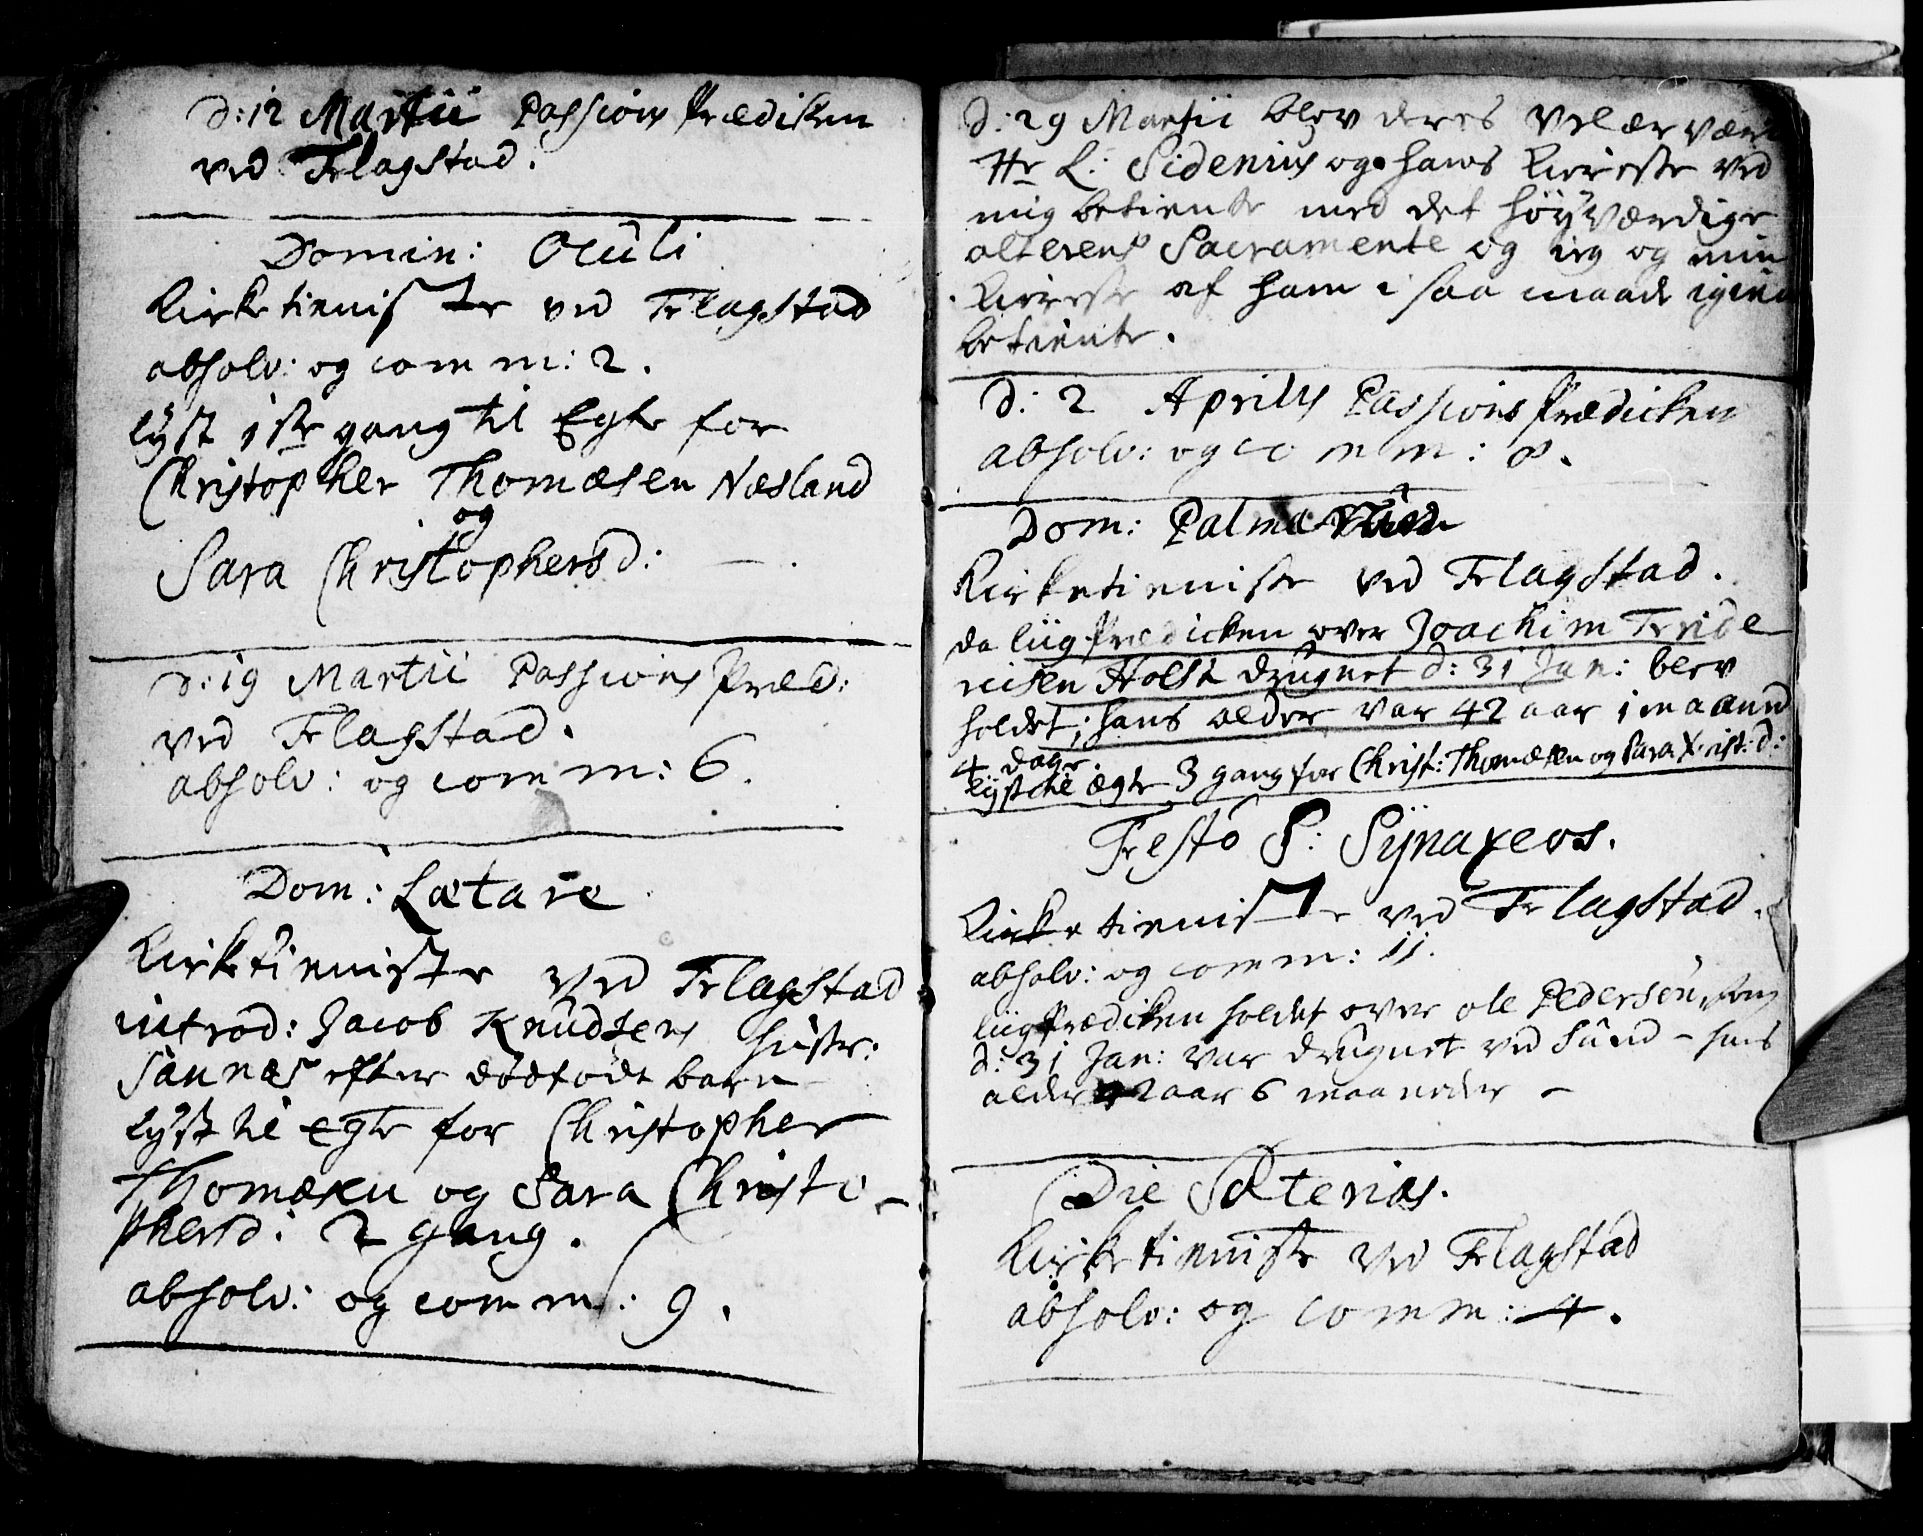 d: 12 Martii Passions Prædiken
ved Flagstad.
Domin: Oculi
Kirketieniste ved Flagstad
absolv: og comm: 2.
lyst 1ste gang til Egte for
Christopher Thomæsen Næsland
og
Sara Christophersd:
d: 19 Martii Passions Præd:
ved Flagstad.
absolv: og comm: 6.
Dom: Lætare
Kirketieniste ved Flagstad
introd: Jacob Knudsens hustr:
Sannæs efter dødfødt barn
lyst til egte for Christopher
Thomæsen og Sara Christo-
phersd: 2 gang.
absolv: og comm: 9.
d: 29 Martii blev deres Velærvær
Hr L: Sidenius og hans Kiereste ved
mig betiente med det høyværdige
alterens Sacramente og ieg og min
Kiereste af ham i saa maade igien
betiente.
d: 2 Aprilis Passions Prædicken
absolv: og comm: 8.
Dom: Palmarum
Kirketieniste ved Flagstad.
da liigprædicken over Joachim Fride
richsen Holst drugnet d: 31 Jan: blev
holdet; hans alder var 42 aar 1 maaned
4 dage.
lyst til ægte 3 gang for Christ: Thomæsen og Sara Xrist: d:
Festo S: Synaxeos.
Kirketieniste ved Flagstad.
absolv: og comm: 11.
liigprædiken holdet over ole Pedersen, som
d: 31 Jan: var drugnet ved Sund - hans
alder 42 aar 6 maaneder -
Die Soterias.
Kirketieniste ved Flagstad
absolv: og comm: 4.